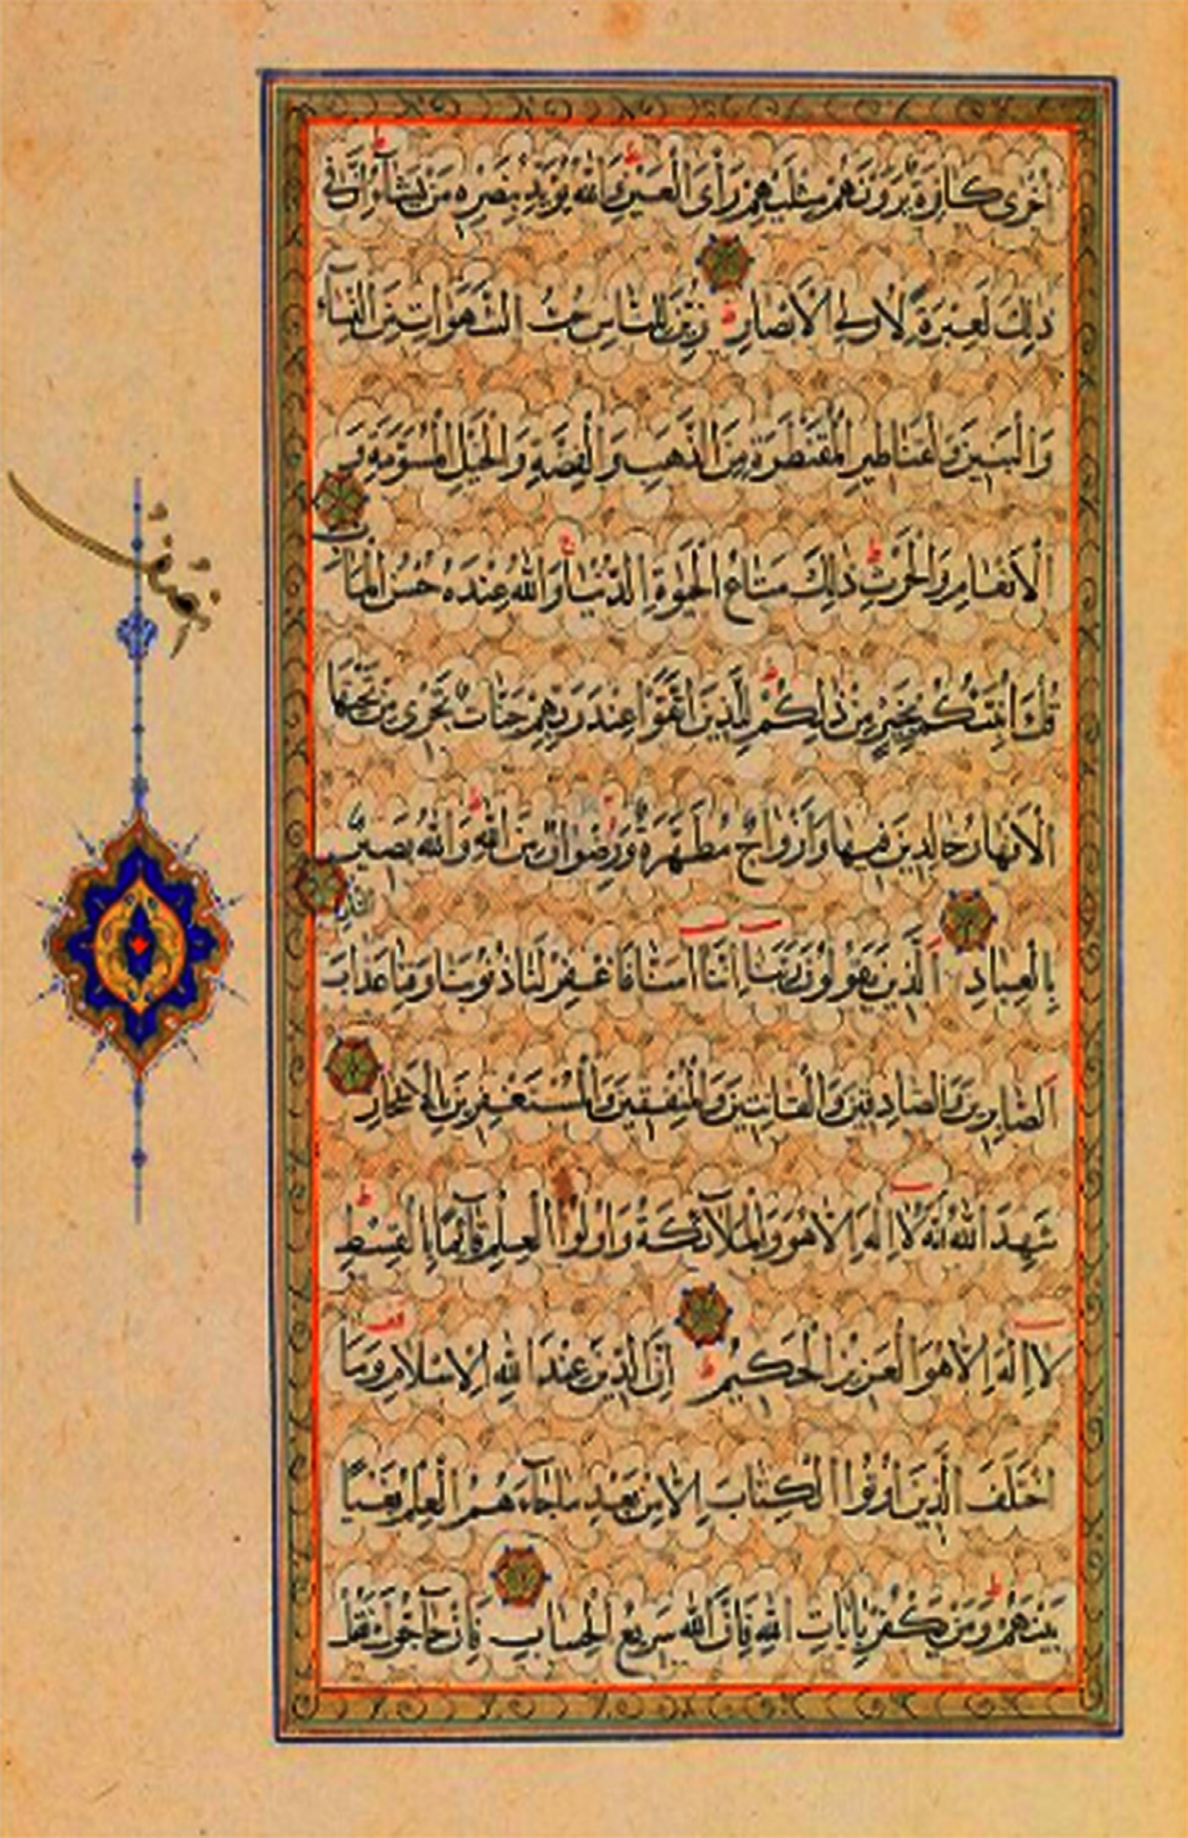 اُخْرٰى كَافِرَةٌ يَرَوْنَهُمْ مِثْلَيْهِمْ رَأْىَ الْعَيْنِ وَاللّٰهُ يُؤَيِّدُ بِنَصْرِهِ مَنْ يَشَآءُ اِنَّ فِى
ذٰلِكَ لَعِبْرَةً لِاُولِى الْاَبْصَارِ زُيِّنَ لِلنَّاسِ حُبُّ الشَّهَوَاتِ مِنَ النِّسَآءِ
وَالْبَنِينَ وَالْقَنَاطِيرِ الْمُقَنْطَرَةِ مِنَ الذَّهَبِ وَالْفِضَّةِ وَالْخَيْلِ الْمُسَوَّمَةِ وَ
الْاَنْعَامِ وَالْحَرْثِ ذٰلِكَ مَتَاعُ الْحَيٰوةِ الدُّنْيَا وَاللّٰهُ عِنْدَهُ حُسْنُ الْمَاٰبِ
قُلْ اَؤُنَبِّئُكُمْ بِخَيْرٍ مِنْ ذٰلِكُمْ لِلَّذِينَ اتَّقَوْا عِنْدَ رَبِّهِمْ جَنَّاتٌ تَجْرِى مِنْ تَحْتِهَا
الْاَنْهَارُ خَالِدِينَ فِيهَا وَاَزْوَاجٌ مُطَهَّرَةٌ وَرِضْوَانٌ مِنَ اللّٰهِ وَاللّٰهُ بَصِيرٌ
بِالْعِبَادِ اَلَّذِينَ يَقُولُونَ رَبَّنَا اِنَّنَا اٰمَنَّا فَاغْفِرْ لَنَا ذُنُوبَنَا وَقِنَا عَذَابَ
النَّارِ
اَلصَّابِرِينَ وَالصَّادِقِينَ وَالْقَانِتِينَ وَالْمُنْفِقِينَ وَالْمُسْتَغْفِرِينَ بِالْاَسْحَارِ
شَهِدَ اللّٰهُ اَنَّهُ لَا اِلٰهَ اِلَّا هُوَ وَالْمَلَآئِكَةُ وَاُولُوا الْعِلْمِ قَآئِمًا بِالْقِسْطِ
لَا اِلٰهَ اِلَّا هُوَ الْعَزِيزُ الْحَكِيمُ اِنَّ الدِّينَ عِنْدَ اللّٰهِ الْاِسْلَامُ وَمَا
اخْتَلَفَ الَّذِينَ اُوتُوا الْكِتَابَ اِلَّا مِنْ بَعْدِ مَا جَآءَهُمُ الْعِلْمُ بَغْيًا
بَيْنَهُمْ وَمَنْ يَكْفُرْ بِاٰيَاتِ اللّٰهِ فَاِنَّ اللّٰهَ سَرِيعُ الْحِسَابِ فَاِنْ حَآجُّوكَ فَقُلْ